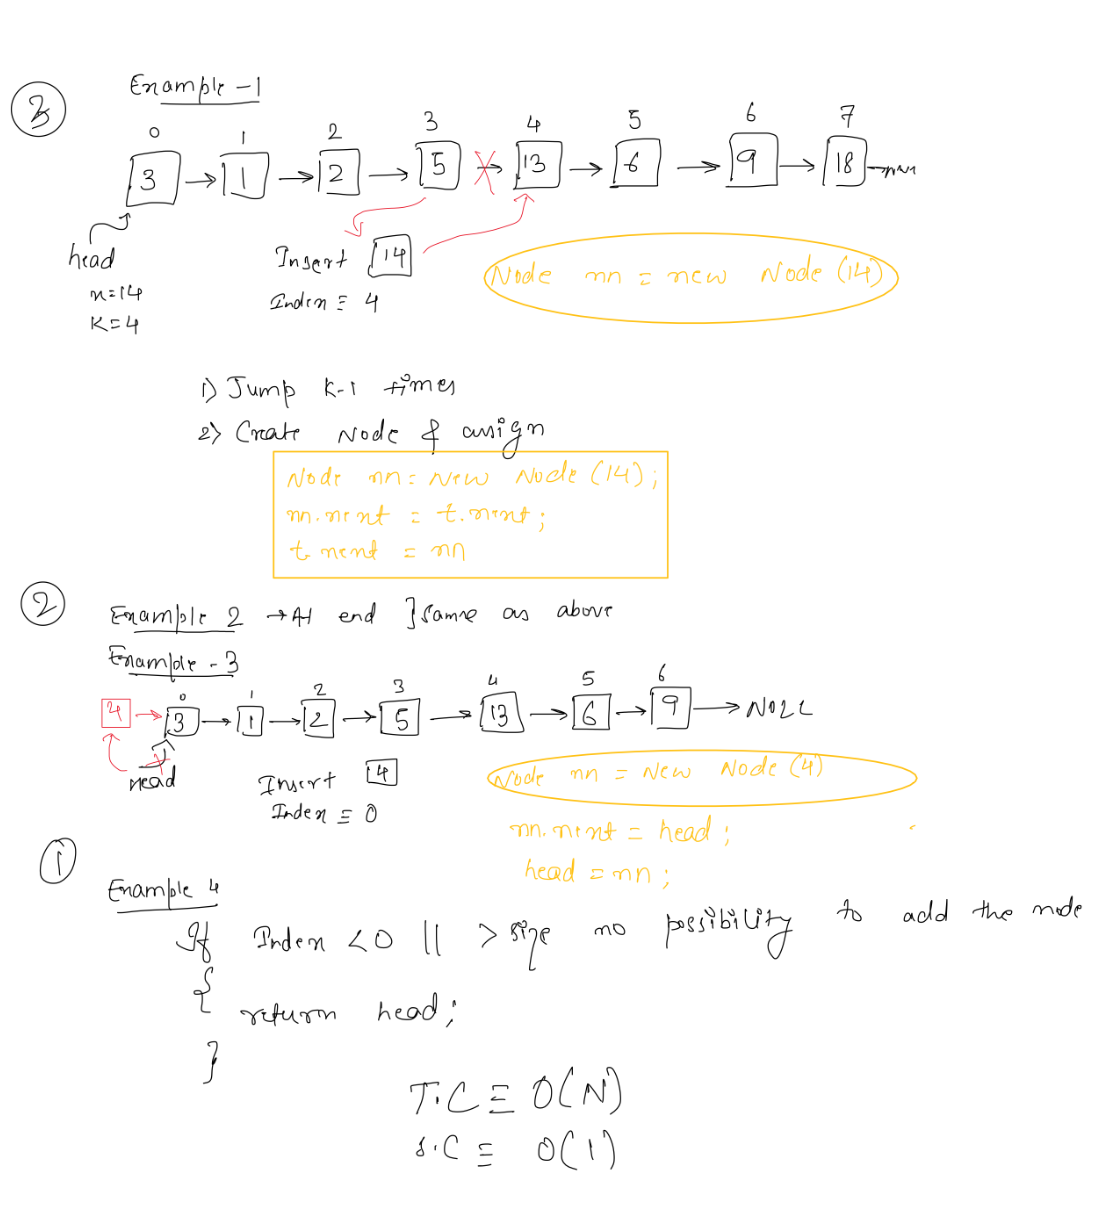 3
Example - 1
0 1 2 3 4 5 6 7
3 → 1 → 2 → 5 → 13 → 6 → 9 → 18 →
head
Insert 14
Node nn = new Node (14)
n = 14
Index ≡ 4
K = 4
1) Jump K-1 times
2) Create Node & assign
Node nn = New Node (14);
nn.next = t.next;
t.next = nn
2
Example 2 → At end } Same as above
Example - 3
0 1 2 3 4 5 6
4 → 3 → 1 → 2 → 5 → 13 → 6 → 9 → NULL
head
Insert 4
Node nn = New Node (4)
Index ≡ 0
nn.next = head;
1
head = nn;
Example 4
If Index < 0 || > size no possibility to add the node
{
return head;
}
T.C ≡ O(N)
S.C ≡ O(1)